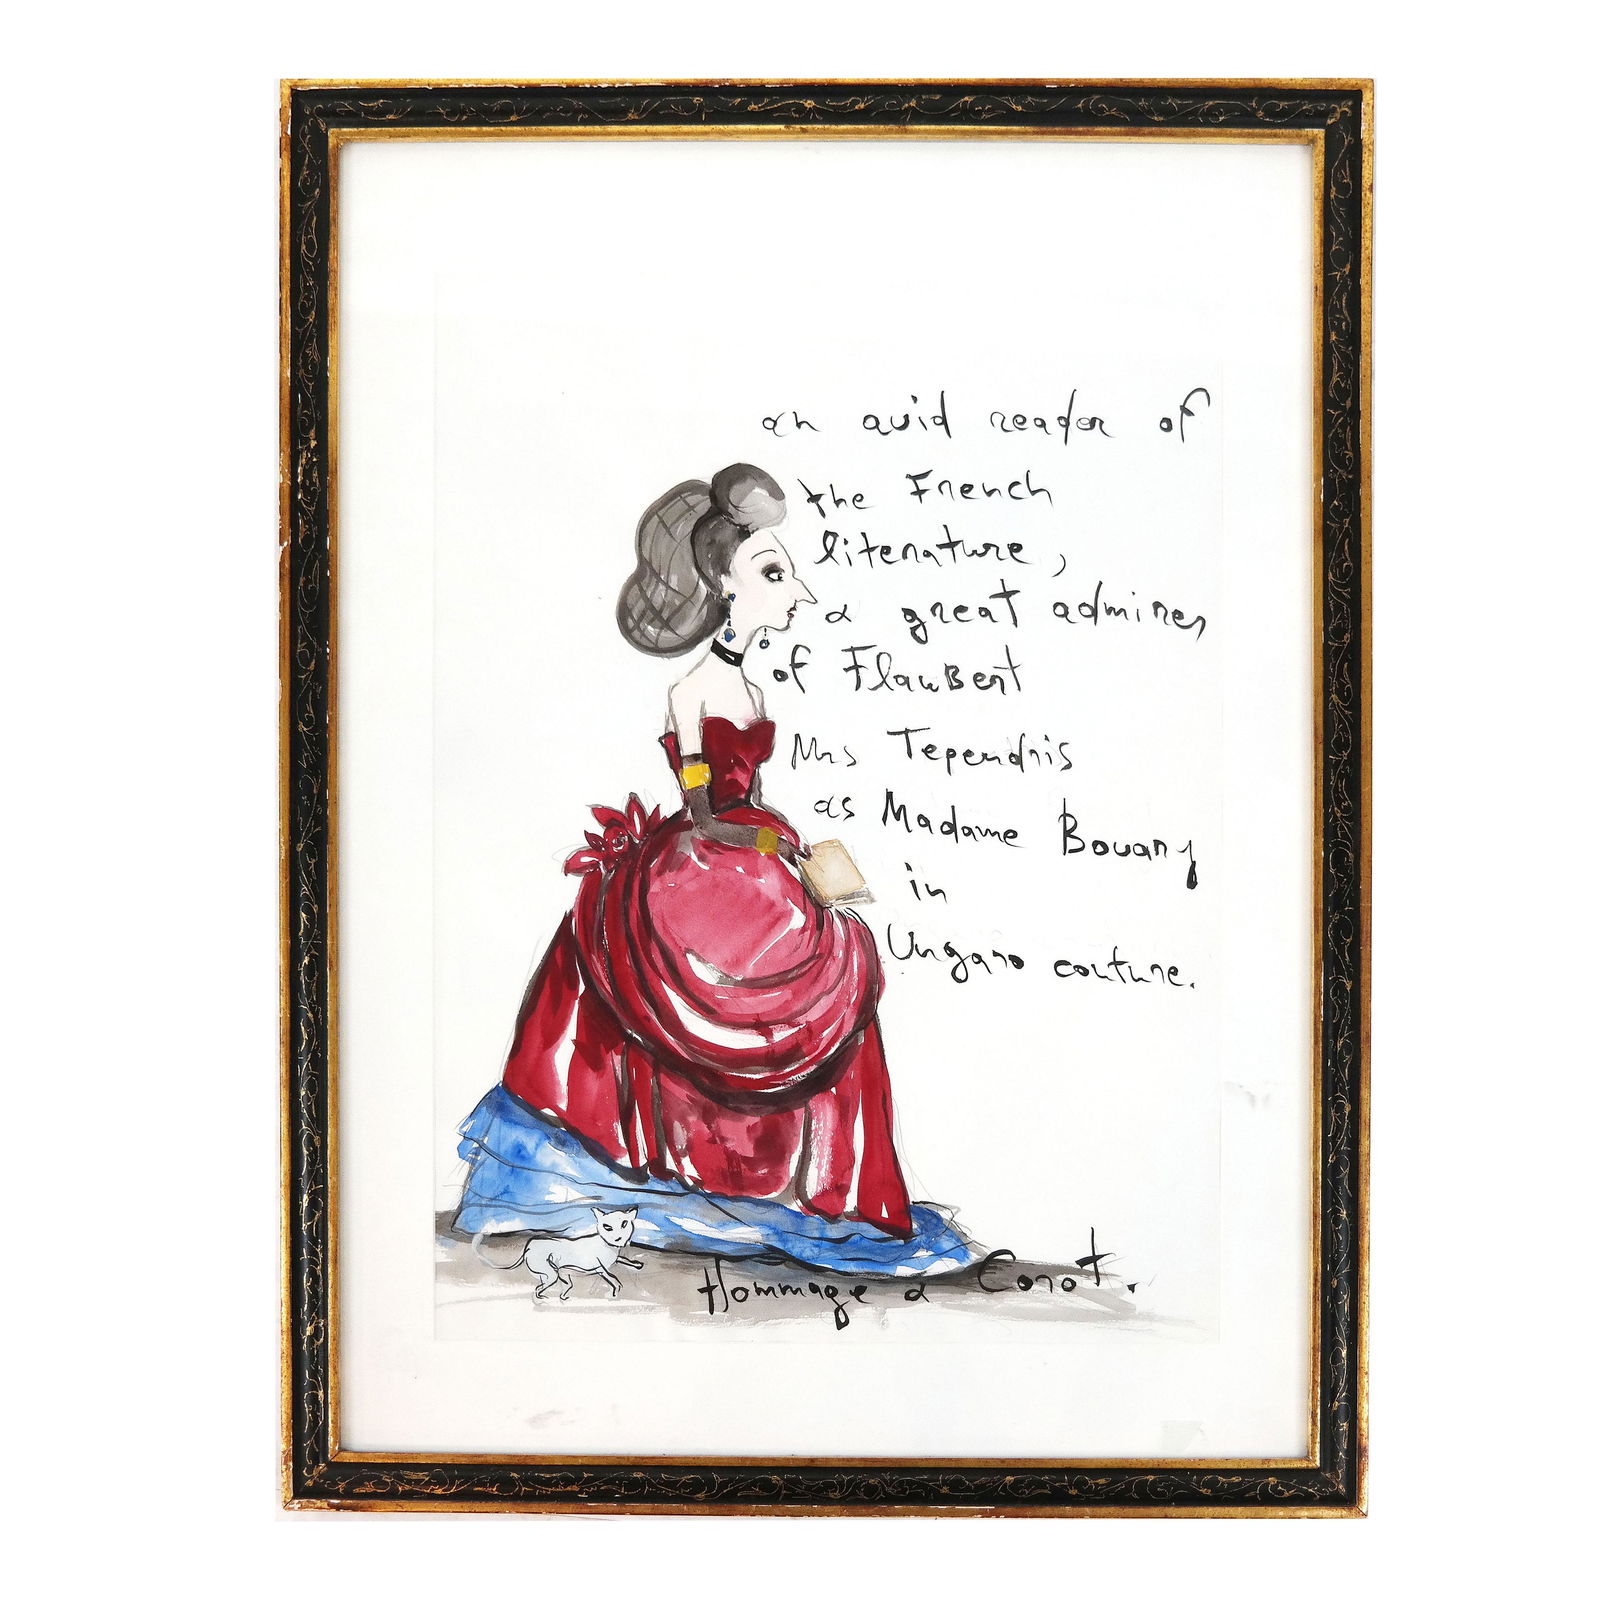 an avid reader of
the French
literature,
a great admirer
of Flaubert
Mrs Tependris
as Madame Bovary
in
Ungaro couture.
Hommage a Corot.